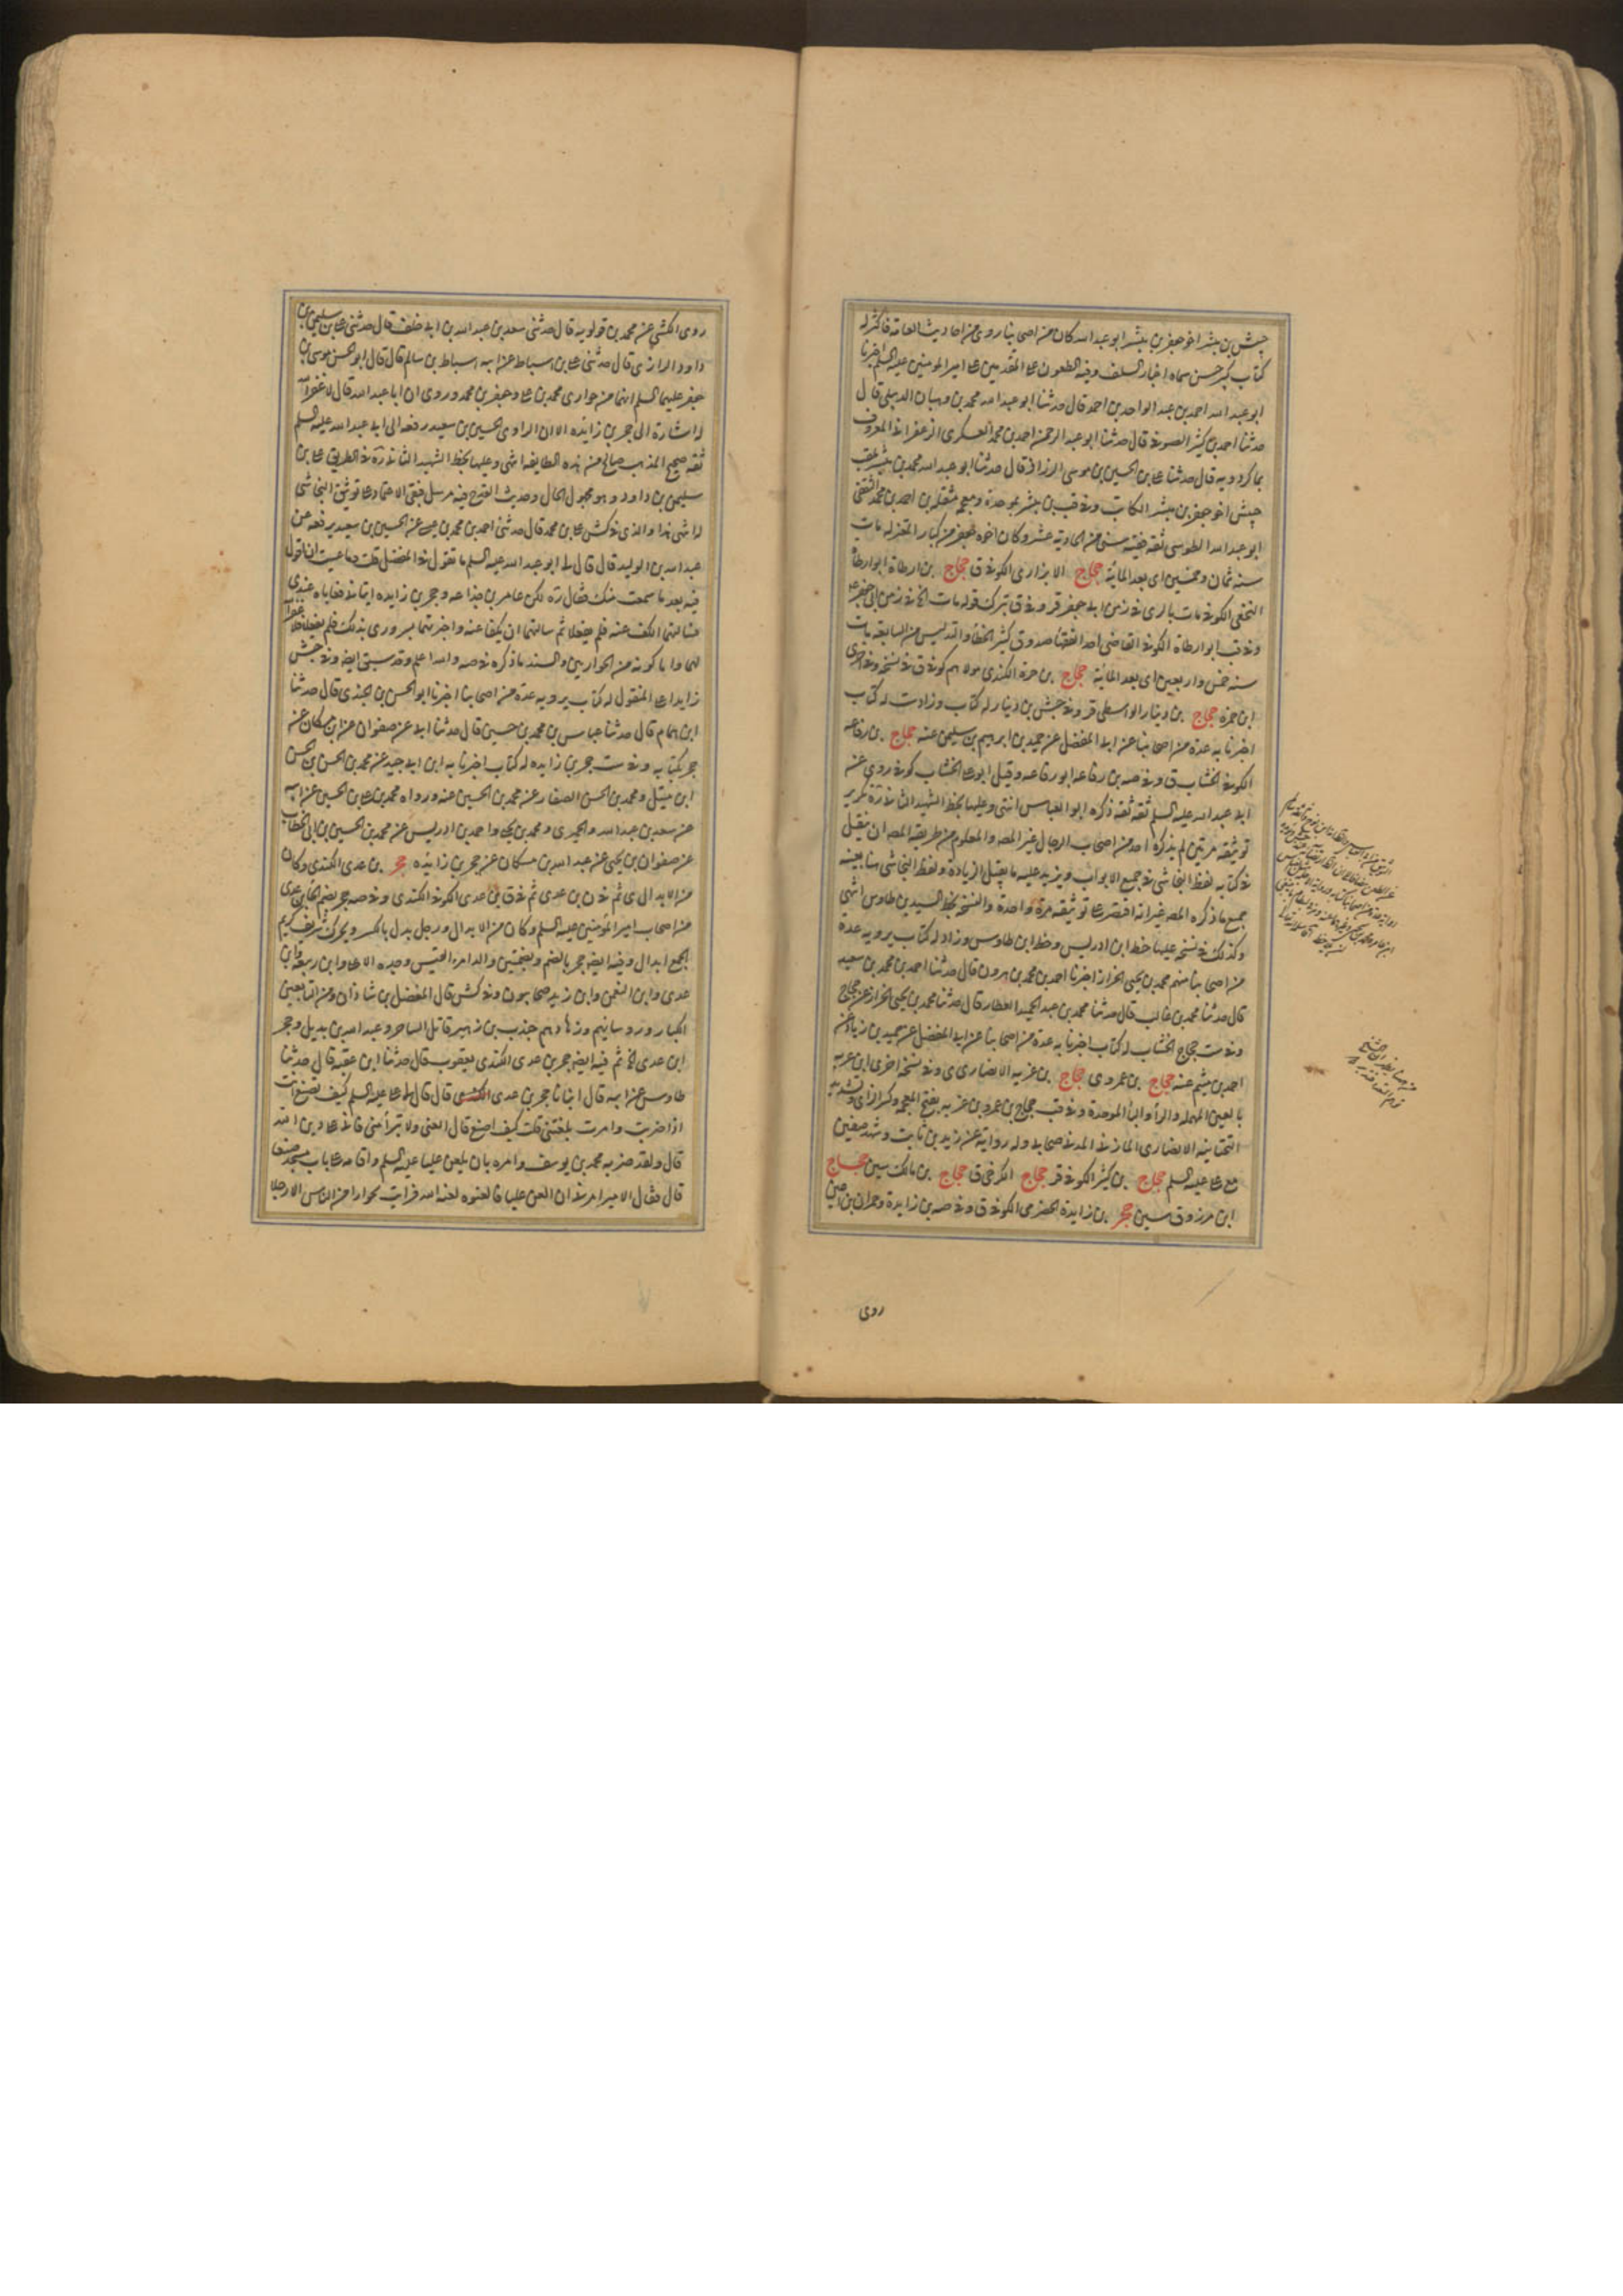 جيش بن مبشر اخو جعفر بن مبشر ابو عبد الله كان من اصحابنا روى من احاديث العامة فاكثر له
كتاب كبير حسن سماه اخبار السلف وفيه الطعون على المتقدمين على امير المؤمنين عليه السلم اخبرنا
ابو عبد الله احمد بن عبد الواحد بن احمد قال حدثنا ابو عبد الله محمد بن وهبان الدبيلي قال
حدثنا احمد بن كثير الصوفي قال حدثنا ابو عبد الرحمن احمد بن محمد العسكري الزعفراني المعروف
بماكردويه قال حدثنا على بن الحسين بن موسى الرزاز قال حدثنا ابو عبد الله محمد بن بشر بلقب
جيش اخو جعفر بن مبشر الكاتب وفي قب بن مبشر بموحدة ومعجمة مثقلة بن احمد بن محمد الثقفي
ابو عبد الله الطوسي ثقة فقيه سني من الحادية عشر وكان اخوه جعفر من كبار المعتزلة مات
سنة ثمان وخمسين اى بعد المائية حجاج الابزارى الكوفي ق حجاج بن ارطاة ابو ارطاة
النخعي الكوفي مات بالرى في زمن ابى جعفر قر وفي ق بترك قوله مات الخ في زمن ابي جعفر
وفي قب ابو ارطاة الكوفي القاضى احد الفقها صدوق كثير الخطا والتدليس من السابعة مات
سنة خمس واربعين اى بعد المائية حجاج بن حمزة الكندى مولاهم كوفي ق في نسخة وفي اخرى
ابن حمزة حجاج بن دينار الواسطى قر وفي جش بن دينار له كتاب وزاد ست له كتاب
اخبرنا به عدة من اصحابنا عن ابى المفضل عن حميد بن ابرهيم بن سليمن عنه حجاج بن رفاعه
الكوفي الخشاب ق وفي صه بن رفاعه ابو رفاعه وقيل ابو على الخشاب كوفي روى عن
ابى عبد الله عليه السلم ثقة ثقة ذكره ابو العباس انتهى وعليها بخط الشهيد الثاني ره تكرير
توثيقه مرتين لم يذكره احد من اصحاب الرجال غير المصـ والمعلوم من طريقه المصـ ان ينقل
في كتابه لفظ النجاشي في جميع الابواب ويزيد عليه ما يقبل الزيادة ولفظ النجاشي هنا بعينه
جميع ما ذكره المصـ غير انه اقتصر على توثيقه مرة واحدة والنسخة بخط السيد بن طاوس انتهى
وكذلك في نسخة عليها خط ابن ادريس وخط ابن طاوس وزاد له كتاب يرويه عدة
من اصحابنا منهم محمد بن يحيى الخزاز اخبرنا احمد بن محمد بن هرون قال حدثنا احمد بن محمد بن سعيد
قال حدثنا محمد بن غالب قال حدثنا محمد بن عبد الحميد العطار قال حدثنا محمد بن يحيى الخزاز عن حجاج
وفي ست حجاج الخشاب له كتاب اخبرنا به عدة من اصحابنا عن ابى المفضل عن حميد بن زياد عن
احمد بن ميثم عنه حجاج بن عمرو ى حجاج بن غزيه الانصارى ى وفي نسخة اخرى ابن عربه
بالعين المهملة والرآ والبآ الموحدة وفي قب حجاج بن عمرو بن غزيه بفتح المعجمة وكسر الزاى وتشديد
التحتانية الانصارى المازني المدني صحابى وله رواية عن زيد بن ثابت وشهد صفين
مع على عليه السلم حجاج بن كثير الكوفي قر حجاج الكرخى ق حجاج بن مالك سين حجاج
ابن مرزوق سين حجر بن زايدة الحضرمى الكوفي ق وفي صه بن زايدة وحمران بن اعين
روى
روى الكشي عن محمد بن قولويه قال حدثنى سعد بن عبد الله بن ابى خلف قال حدثنى على بن سليمن بن
داود الرازى قال حدثنى على بن اسباط عن ابيه اسباط بن سالم قال قال ابو الحسن موسى بن
جعفر عليهما السلم انهما من حوارى محمد بن على وجعفر بن محمد وروى ان ابا عبد الله قال لا غفر الله
له اشارة الى حجر بن زايده الا ان الراوى الحسين بن سعيد رفعه الى ابى عبد الله عليه السلم
ثقة صحيح المذهب صالح من هذه الطايفة انتهى وعليها بخط الشهيد الثاني ره في الطريق على بن
سليمن بن داود وهو مجهول الحال وحديث القدح فيه مرسل فبقى الاعتماد على توثيق النجاشى
له انتهى هذا والذى في كش على بن محمد قال حدثنى احمد بن محمد بن عيسى عن الحسين بن سعيد يرفعه عن
عبد الله بن الوليد قال قال لى ابو عبد الله عليه السلم ما تقول في المفضل قلت وما عسيت ان اقول
فيه بعد ما سمعت منك فقال ره لكن عامر بن جذاعه وحجر بن زايده اتيانى فعاباه عندى
فسالتهما الكف عنه فلم يفعلا ثم سالتهما ان يكفا عنه واخبرتهما بسرورى بذلك فلم يفعلا فلا غفر الله
لهما واما كونه من الحواريين والسند ما ذكره في صه والله اعلم وقد سبق ايضا وفي جش
زايدا على المنقول له كتاب يرويه عدة من اصحابنا اخبرنا ابو الحسن بن الجندى قال حدثنا
ابن همام قال حدثنا عباس بن محمد بن حسين قال حدثنا ابى عن صفوان عن ابن مسكان عن
حجر بكتابه وفي ست حجر بن زايده له كتاب اخبرنا به ابن ابى جيد عن محمد بن الحسن بن الحسن
ابن متيل ومحمد بن الحسن الصفار عن محمد بن الحسين عنه ورواه محمد بن على بن الحسين عن ابيه
عن سعد بن عبد الله والحميرى ومحمد بن يحيى واحمد بن ادريس عن محمد بن الحسين بن ابى الخطاب
عن صفوان بن يحيى عن عبد الله بن مسكان عن حجر بن زايده حجر بن عدى الكندى وكان
من الابدال ى ثم في ن بن عدى ثم في ق بن عدى الكوفي الكندى وفي صه حجر بضم الحا بن عدى
من اصحاب امير المؤمنين عليه السلم وكان من الابدال ورجل بدل بالكسر ويحرك شريف كريم
الجمع ابدال وفيه ايضا حجر بالضم وبضمتين والد امرء القيس وجده الاعلى وابن ربيعه وابن
عدى وابن النعمن وابن زيد صحابيون وفي كش قال الفضل بن شاذان ومن التابعين
الكبار وروسائهم وزهادهم جندب بن زهير قاتل الساحر وعبد الله بن بديل وحجر
ابن عدى الخ ثم فيه ايضا حجر بن عدى الكندى يعقوب قال حدثنا ابن عقبه قال حدثنا
طاوس عن ابيه قال انبانا حجر بن عدى الكندى قال قال لى على عليه السلم كيف تصنع انت
اذا ضربت وامرت بلعنتى قلت كيف اصنع قال العنى ولا تبرأ منى فانى على دين الله
قال ولقد ضربه محمد بن يوسف وامره بان يلعن عليا عليه السلم واقامه على باب مسجد صنعا
قال فقال ان الامير امرنى ان العن عليا فالعنوه لعنه الله فرايت مجوازا من الناس الا رجلا